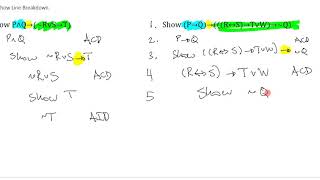 how Line Breakdown.
Show P∧Q→(~R∨S→T)
P∧Q ACD
Show ~R∨S→T
~R∨S ACD
Show T
~T AID
1. Show (P→Q)→(((R↔S)→T∨W)→~Q)
2. P→Q ACD
3. Show ((R↔S)→T∨W)→~Q
4 (R↔S)→T∨W ACD
5 Show ~Q